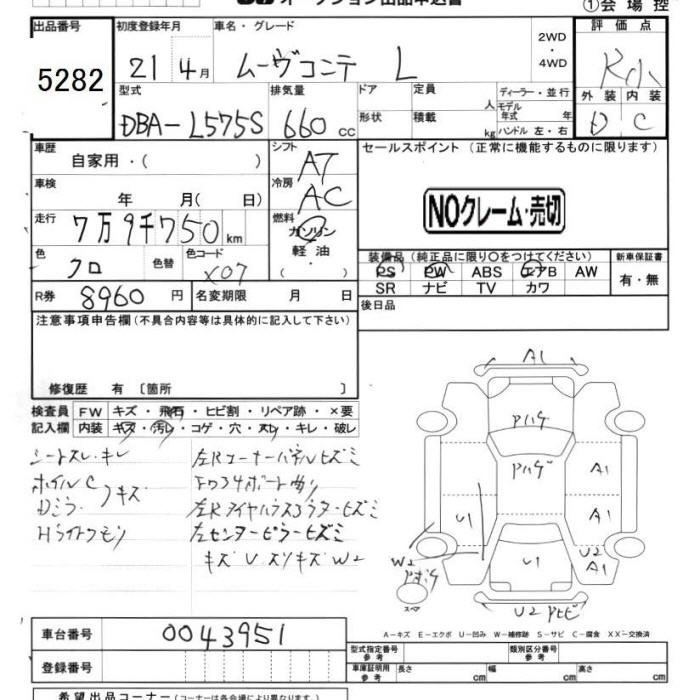 オークション出品申込書
①会場控
出品番号 初度登録年月 車名・グレード 評価点
5282
21年 4月 ムーヴコンテ L 2WD・4WD
型式 排気量 ドア 定員 人 ディーラー・並行 外装 内装
DBA-L575S 660cc 形状 積載 kg モデル年式 年 ハンドル 左・右 D C
車歴 自家用・( ) シフト AT セールスポイント(正常に機能するものに限ります)
車検 年 月( 日) 冷房 AC
NOクレーム・売切
走行 7万9千750km 燃料 ガソリン 軽油・( )
色 クロ 色替 色コード X07
装備品(純正品に限り○をつけてください) 新車保証書
PS PW ABS エアB AW 有・無
SR ナビ TV カワ
R券 8960円 名変期限 月 日 後日品
注意事項申告欄(不具合内容等は具体的に記入して下さい)
修復歴 有 〔箇所 〕
検査員記入欄 FW キズ・飛石・ヒビ割・リペア跡・×要
内装 キズ・汚レ・コゲ・穴・スレ・キレ・破レ
シートスレ・キレ
ホイルC
Dミラーキズ
Hライトクモリ
左Rコーナーパネルヒズミ
左Rタイヤハウスアウターヒズミ
左センターピラーヒズミ
キズU スリキズW2
A1
Pハゲ
Pハゲ
A1
U1
A1
U2
A1
W2
U1
スペア
U2
A-キズ E-エクボ U-凹み W-補修跡 S-サビ C-腐食 XX-交換済
車台番号 0043951
型式指定番号 参考 類別区分番号 参考
登録番号
車庫証明用 参考 長さ cm 幅 cm 高さ cm
希望出品コーナー(コーナーは各会場により異なります)